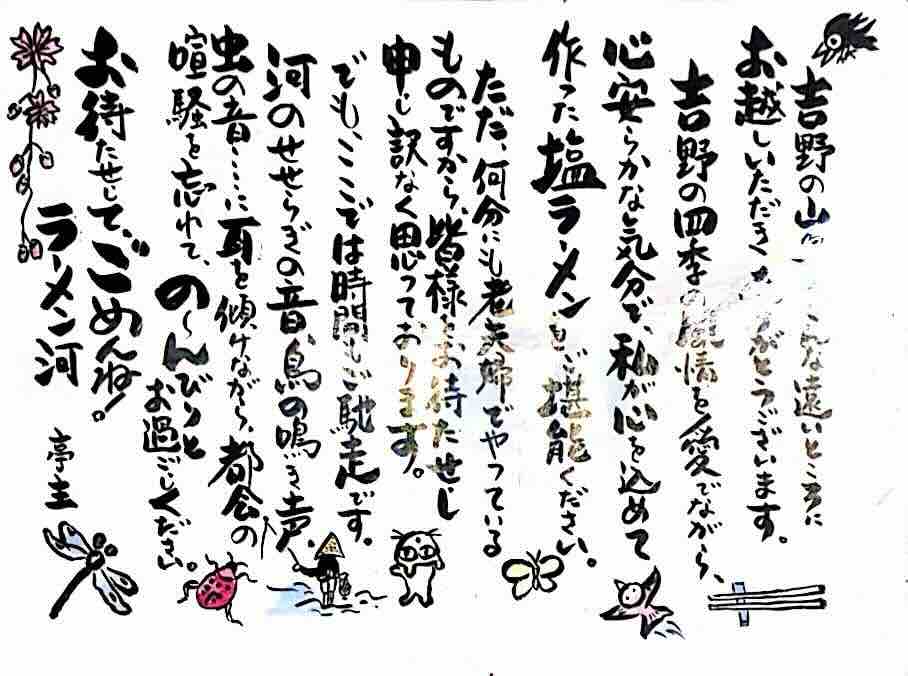 吉野の山 こんな遠いところに
お越しいただき がとうございます。
吉野の四季 風情を愛でながら、
心安らかな気分で、私が心を込めて
作った塩ラーメンをご堪能ください。
ただ、何分にも老夫婦でやっている
ものですから、皆様をお待たせし
申し訳なく思っております。
でも、ここでは時間もご馳走です。
河のせせらぎの音、鳥の鳴き声、
虫の音……に耳を傾けながら、都会の
喧騒を忘れて、の〜んびりと
お過ごしください。
お待たせして、ごめんね!
ラーメン河 亭主